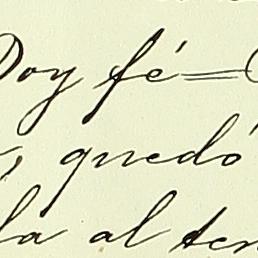 Doy fé=
, quedó
la al ten